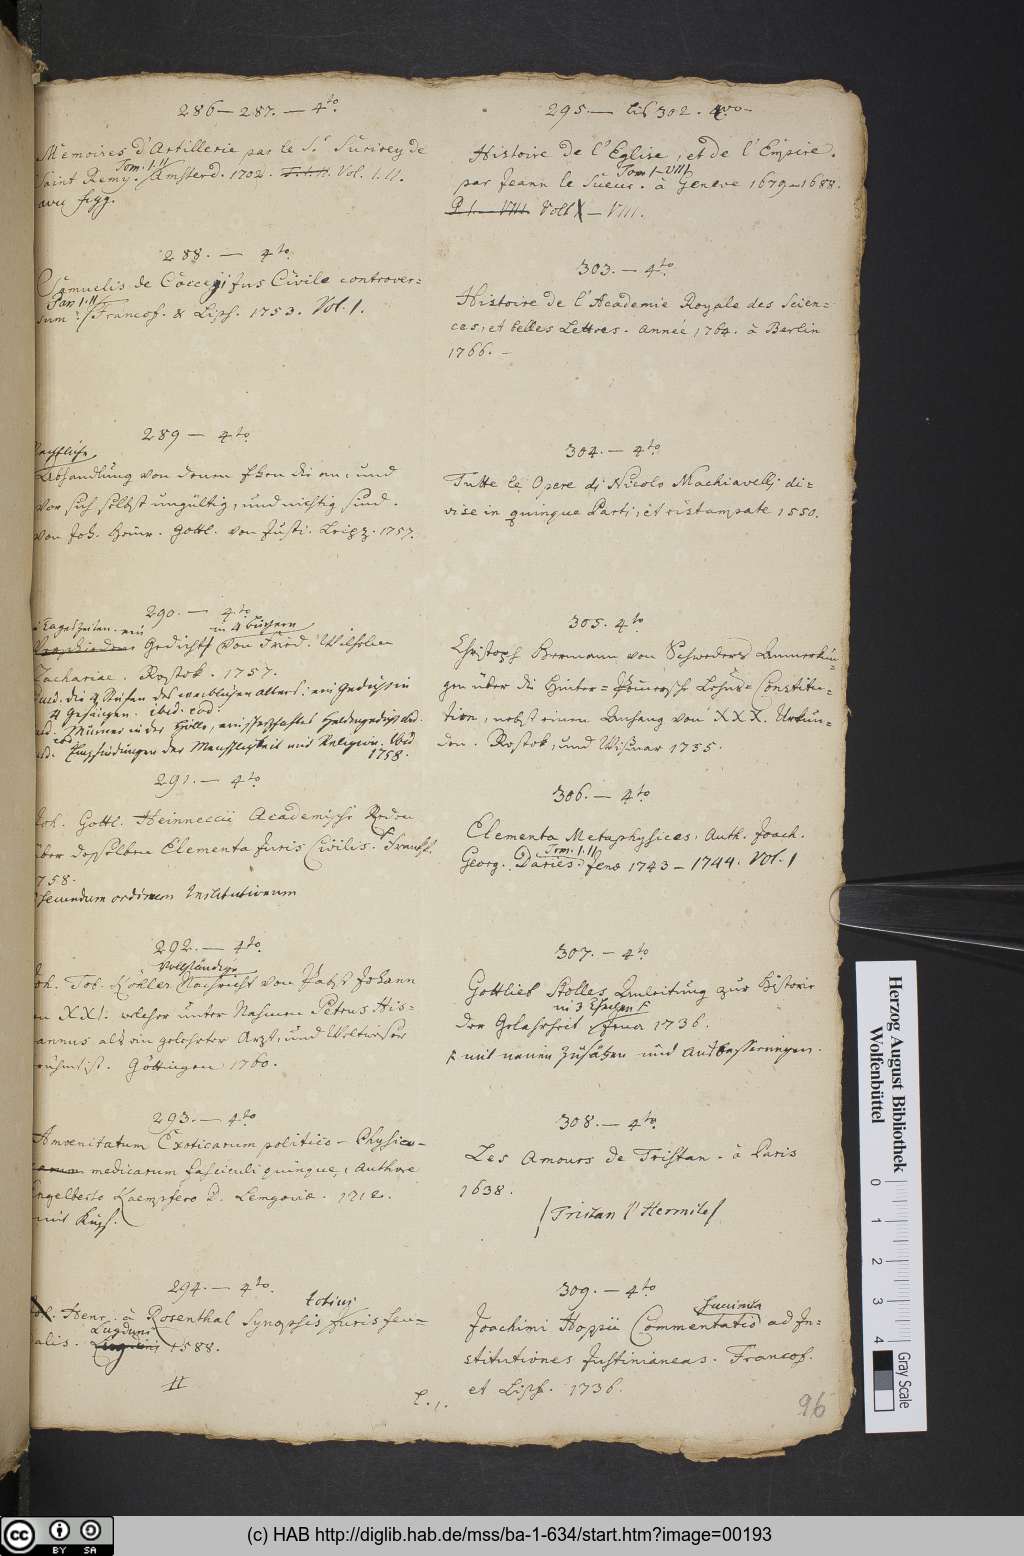 286–287. – 4to.
Memoires d'Artillerie par le Sr. Surirey de
Tom. I.II
Saint Remy. Amsterd. 1702. T. I. II. Vol. I. II.
avec figg.
288. – 4to.
Samuelis de Cocceji jus Civile controver=
sum. Francof. & Lips. 1753. Vol. 1.
289 – 4to.
Rechtliche
Abhandlung von denen Ehen die an, und
vor sich selbst ungültig, und nichtig sind.
von Joh. Heinr. Gottl. von Justi. Leipz. 1757.
290. – 4to.
Tageszeiten. ein
in 4 Büchern
Gedicht von Fried. Wilhelm
Zachariae. Rostok. 1757.
die 4 Stufen des weiblichen Alters: ein Gedicht in
4 Gesängen. ibid. eod.
Murner in der Hölle, ein scherzhaftes Heldengedicht
Empfindungen der Menschlichkeit und Religion. Ibid
1758.
291. – 4to.
Joh. Gottl. Heineccii Academische Reden
über desselben Elementa Juris Civilis. Franckf.
1758.
secundum ordinem Institutionum
292. – 4to.
Vollständige
Joh. Tob. Köhler Nachricht von Pabst Johann
en XXI. welcher unter Nahmen Petrus His=
panus als ein gelehrter Arzt, und Weltweiser
rühmt ist. Göttingen 1760.
293. – 4to.
Amoenitatum Exoticarum politico – Physico –
medicarum fasciculi quinque, Authore
Engelberto Kaempfero D. Lemgoviae. 1712.
mit Kupf.
294. – 4to.
totius
Henr. à Rosenthal Synopsis juris feu=
Lugduni
alis. 1588.
II
295. – bis 302. 4to.
Histoire de l'Eglise, et de l'Empire.
Tom I–VIII
par Jean le Sueur. à Geneve 1679–1688.
P. I. – VIII. Voll I – VIII.
303. – 4to.
Histoire de l'Academie Royale des Scien=
ces, et belles Lettres. Anneé 1764. à Berlin
1766. –
304. – 4to.
Tutte le Opere di Nicolo Machiavelli di=
vise in quinque Parti, et ristampate 1550.
305. 4to.
Christoph Hermann von Schweders Anmerkun=
gen über die Hinter= Pommersche Lehns= Constitu=
tion, nebst einem Anhang von XXX. Urkun=
den. Rostok, und Wismar 1755.
306. – 4to.
Elementa Metaphysices. Auth. Joach.
Tom. I. II
Georg. Daries. Jenae 1743 – 1744. Vol. 1
307. – 4to.
Gottlieb Stolles Anleitung zur Historie
in 3 Theilen
der Gelahrheit Jena 1736.
mit neuen Zusätzen und Ausbesserungen.
308. – 4to.
Les Amours de Tristan. à Paris
1638.
Tristan l'Hermite
309. – 4to.
succincta
Joachimi Hoppii Commentatio ad In=
stitutiones Justinianeas. Francof.
et Lips. 1736.
96
Herzog August Bibliothek
Wolfenbüttel
0 1 2 3 4
Gray Scale
cc BY SA
(c) HAB http://diglib.hab.de/mss/ba-1-634/start.htm?image=00193